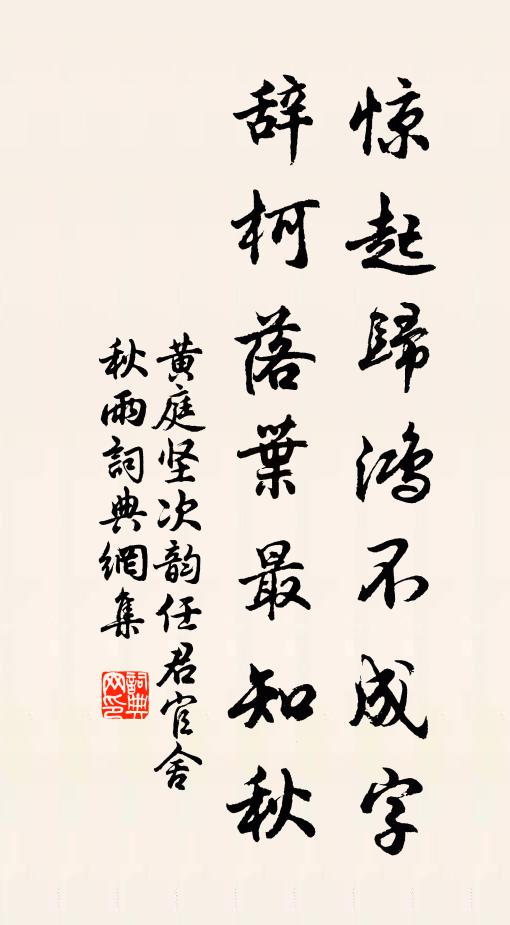 惊起歸鸿不成字
辞柯落葉最知秋
黄庭坚次韵任君官舍
秋雨詞典網集
詞典网印